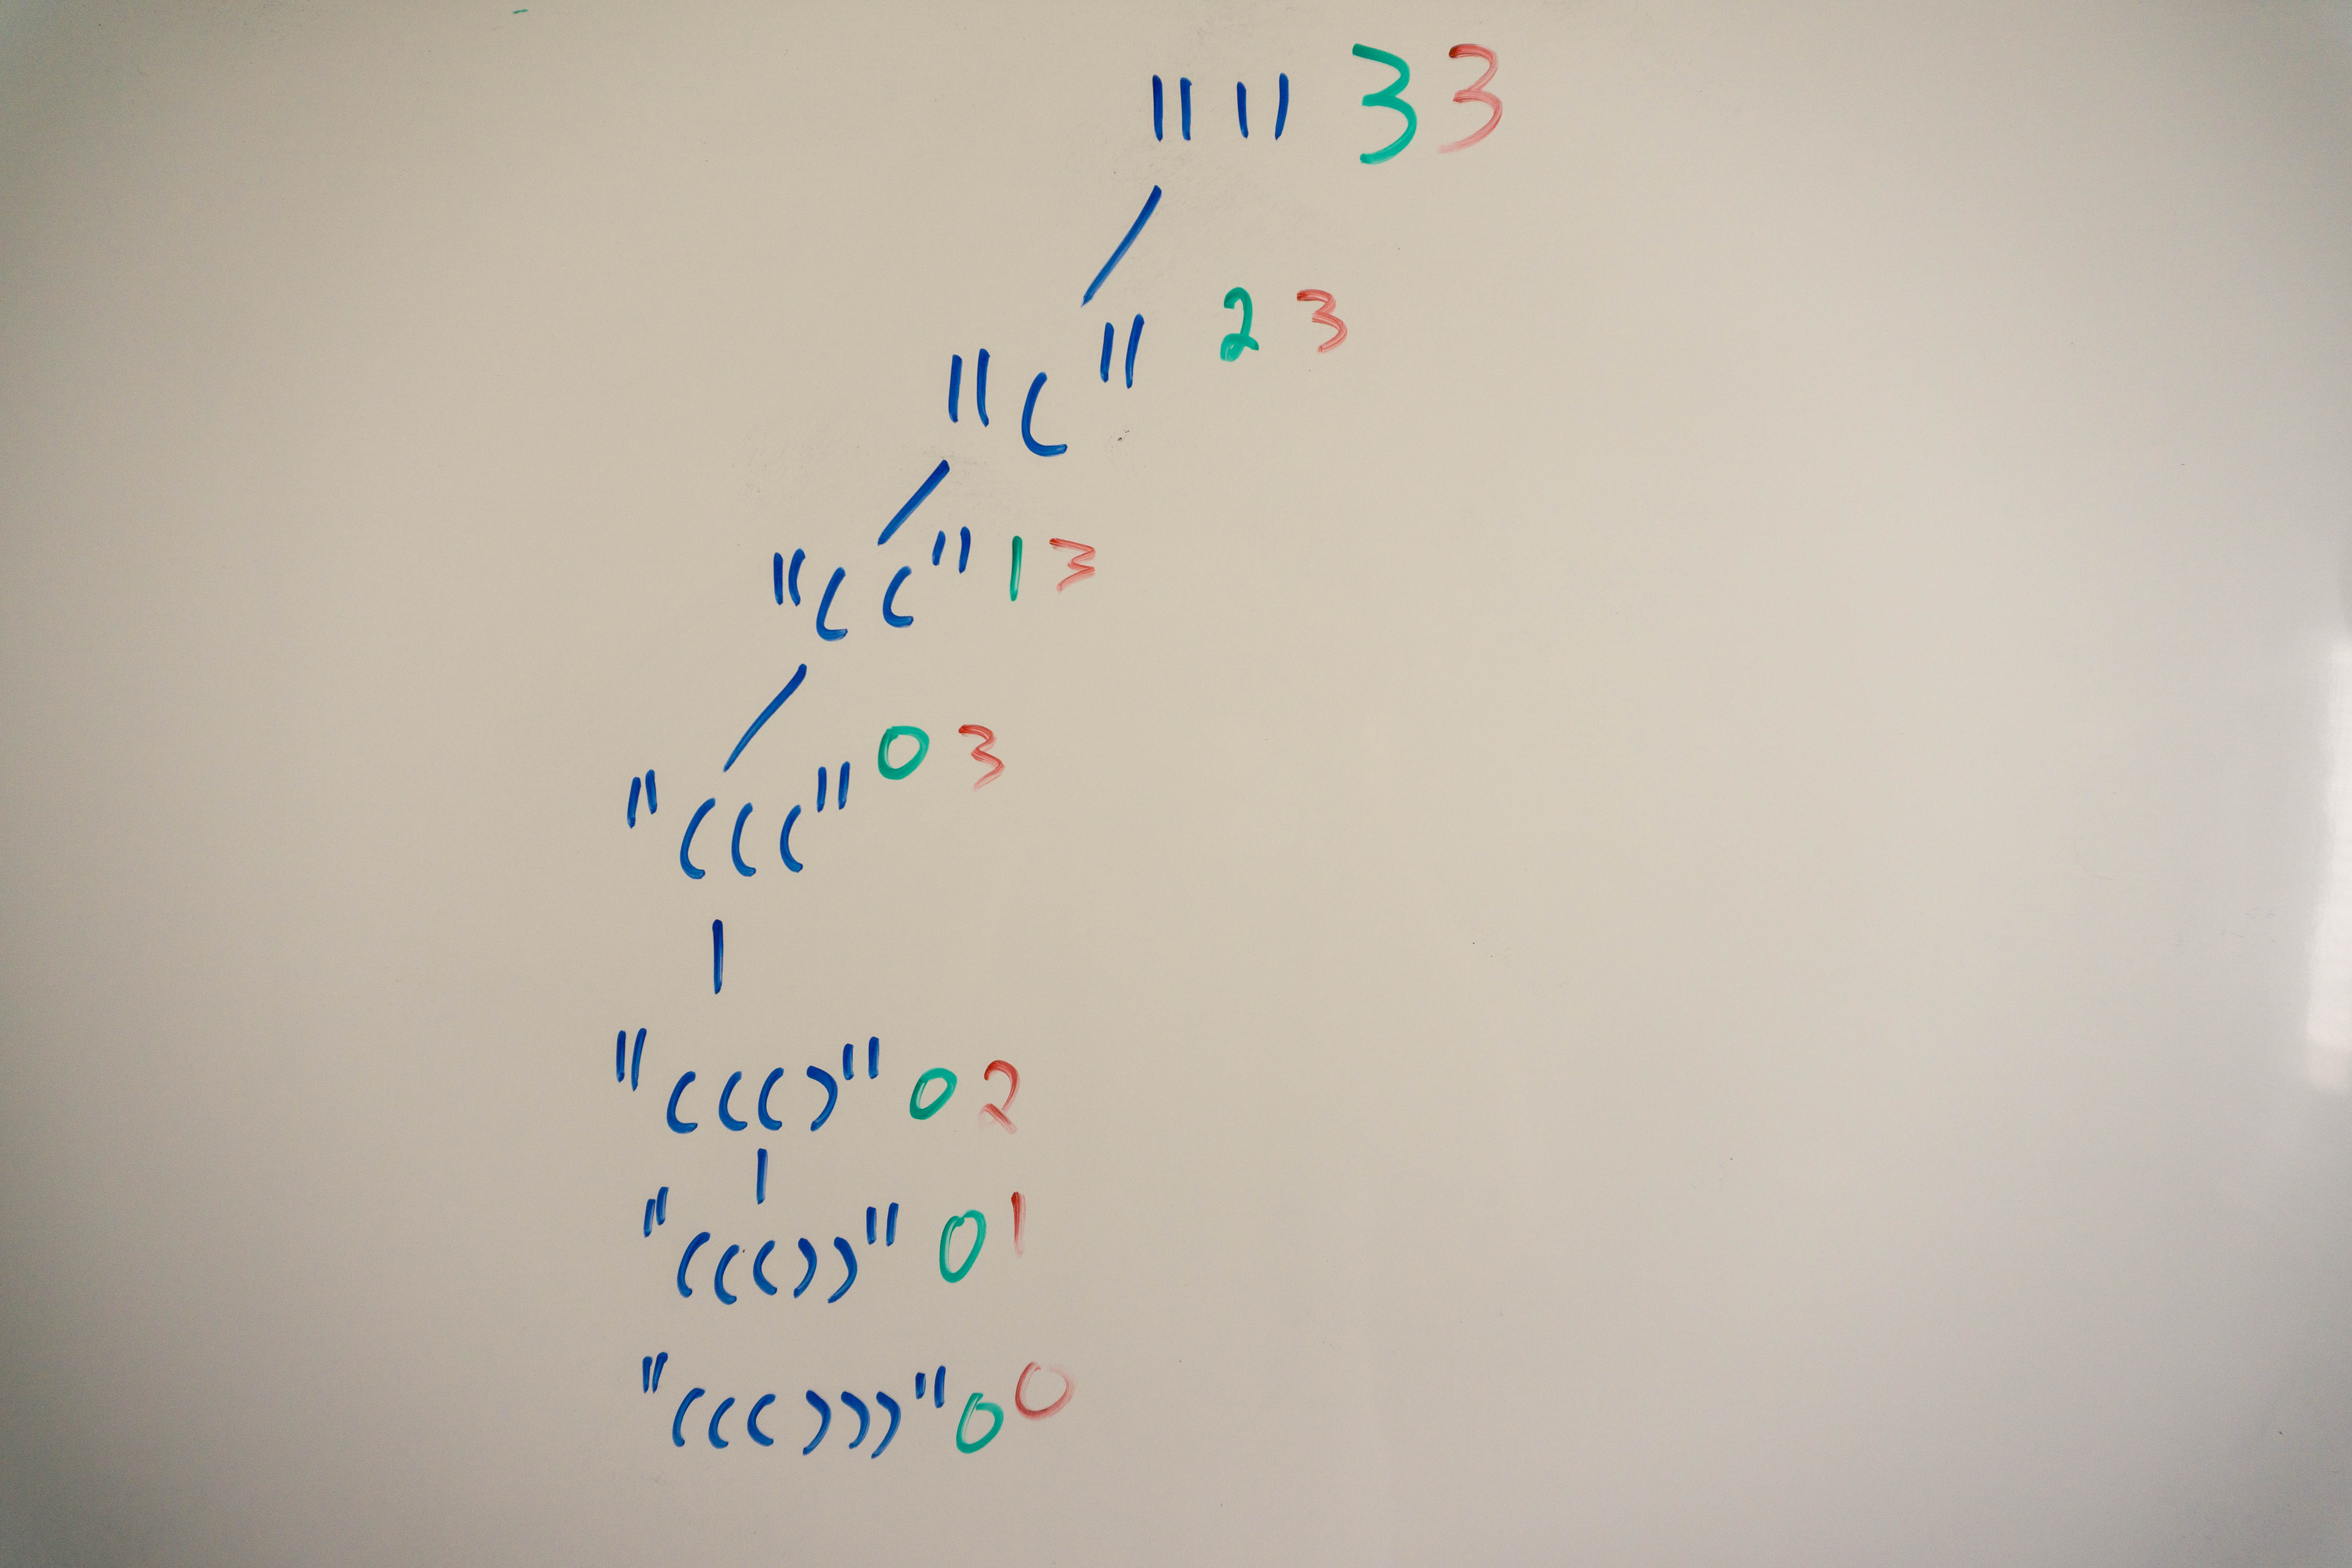 "" 3 3
"(" 2 3
"((" 1 3
"(((" 0 3
"((()" 0 2
"((())" 0 1
"((()))" 0 0